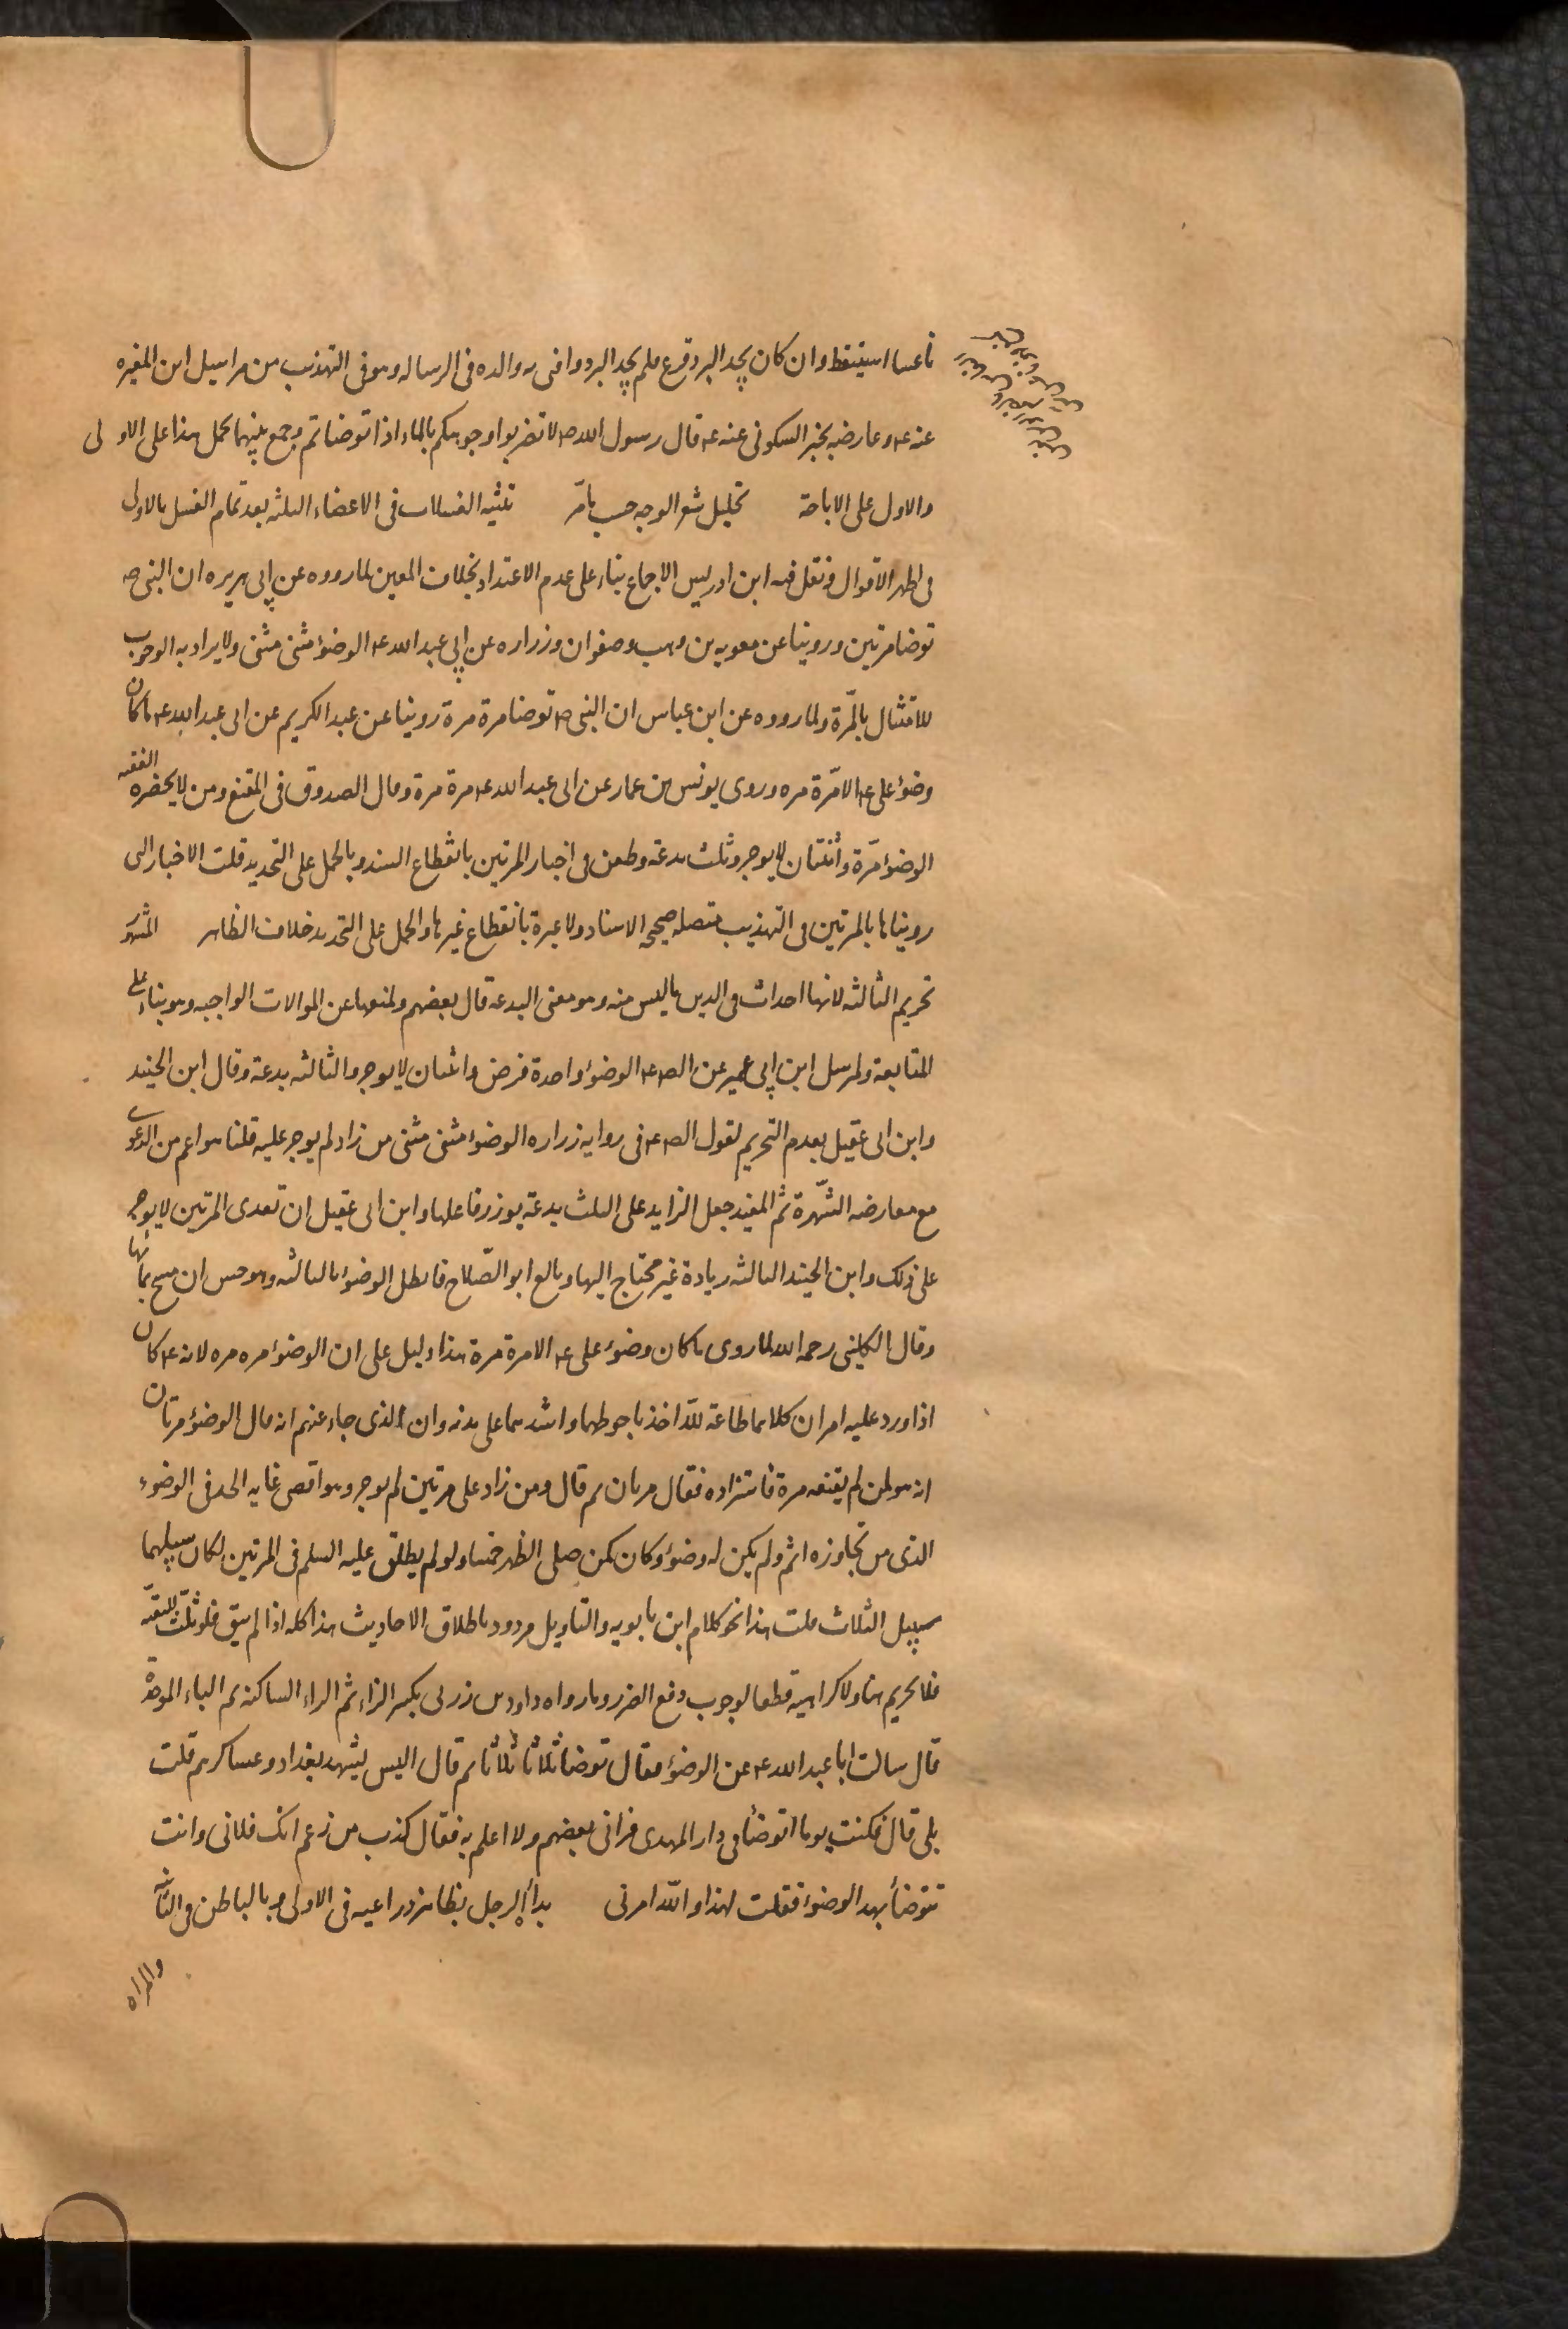 ناعسا استيقظ وان كان يجد البرد فزع فلم يجد البرد وافتى به والده فى الرساله وهو فى التهذيب من مراسيل ابن المغيره
عنه ع وعارضه بخبر السكونى عنه ع قال رسول الله ص لا تضربوا وجوهكم بالماء اذا توضاتم وجمع بينهما بحمل هذا على الاولى
والاول على الاباحة تخليل شعر الوجه حسب ما مر تثنيه الغسلات فى الاعضاء الثلثه بعد تمام الغسل بالاولى
فى اظهر الاقوال ونقل فيه ابن ادريس الاجماع بناء على عدم الاعتداد بخلاف المعين لما رووه عن ابى هريره ان النبى ص
توضا مرتين وروينا عن معويه بن وهب وصفوان وزراره عن ابى عبد الله ع الوضوء مثنى مثنى ولا يراد به الوجوب
للامتثال بالمرّة ولما رووه عن ابن عباس ان النبى ص توضا مرة مرة روينا عن عبد الكريم عن ابى عبد الله ع ما كان
وضوء على ع الا مرّة مره وروى يونس بن عمار عن ابى عبد الله ع مرة مرة وقال الصدوق فى المقنع ومن لا يحضره الفقيه
الوضوء مرّة واثنتان لا يوجر وثلث بدعة وطعن فى اخبار المرتين بانقطاع السند وبالحمل على التجديد قلت الاخبار التى
رويناها بالمرتين فى التهذيب متصله صحيحة الاسناد ولا عبرة بانقطاع غيرها والحمل على التجديد خلاف الظاهر المشهور
تحريم الثالثه لانها احداث فى الدين ما ليس منه وهو معنى البدعه قال بعضهم ولمنعها عن الموالات الواجبه وهو بناء على
المتابعة ولمرسل ابن ابى عمير عن الص ع الوضوء واحدة فرض واثنتان لا يوجر والثالثه بدعة وقال ابن الجنيد
وابن ابى عقيل بعدم التحريم لقول الص ع فى روايه زراره الوضوء مثنى مثنى من زاد لم يوجر عليه قلنا هو اعم من الدعوى
مع معارضه الشّهرة ثم المفيد جعل الزايد على الثلث بدعة يوزر فاعلها وابن ابى عقيل ان تعدى المرتين لا يوجر
على ذلك وابن الجنيد الثالثه زيادة غير محتاج اليها وبالغ ابو الصّلاح فابطل الوضوء بالثالثه وهو حسن ان مسح بمائها
وقال الكلينى رحمه الله لما روى ما كان وضوء على ع الا مرة مرة هذا دليل على ان الوضوء مره مره لانه ع كان
اذا ورد عليه امران كلاهما طاعة للّه اخذ باحوطهما واشدهما على بدنه وان الذى جاء عنهم انه قال الوضوء مرتان
انه هو لمن لم يقنعه مرة فاستزاده فقال مرتان ثم قال ومن زاد على مرتين لم يوجر وهو اقصى غايه الحد فى الوضوء
الذى من تجاوزه اثم ولم يكن له وضوء وكان كمن صلى الظهر خمسا ولو لم يطلق عليه السلم فى المرتين لكان سبيلهما
سبيل الثلاث قلت هذا نحو كلام ابن بابويه والتاويل مردود باطلاق الاحاديث هذا كله اذا لم يتق فلو ثلّث للتقيّه
فلا تحريم هنا ولا كراهيه قطعا لوجوب دفع الضرر وما رواه داود بن زربى بكسر الزاء ثم الراء الساكنه ثم الباء الموحدة
قال سالت ابا عبد الله ع عن الوضوء فقال توضا ثلاثا ثلاثا ثم قال اليس يشهد بغداد وعساكرهم قلت
بلى قال فكنت يوما اتوضأ فى دار المهدى فرانى بعضهم ولا اعلم به فقال كذب من زعم انك فلانى وانت
تتوضأ بهذا الوضوء فقلت لهذا والله امرنى بدأة الرجل بظاهر ذراعيه فى الاولى وبالباطن فى الثانيه
والمراه